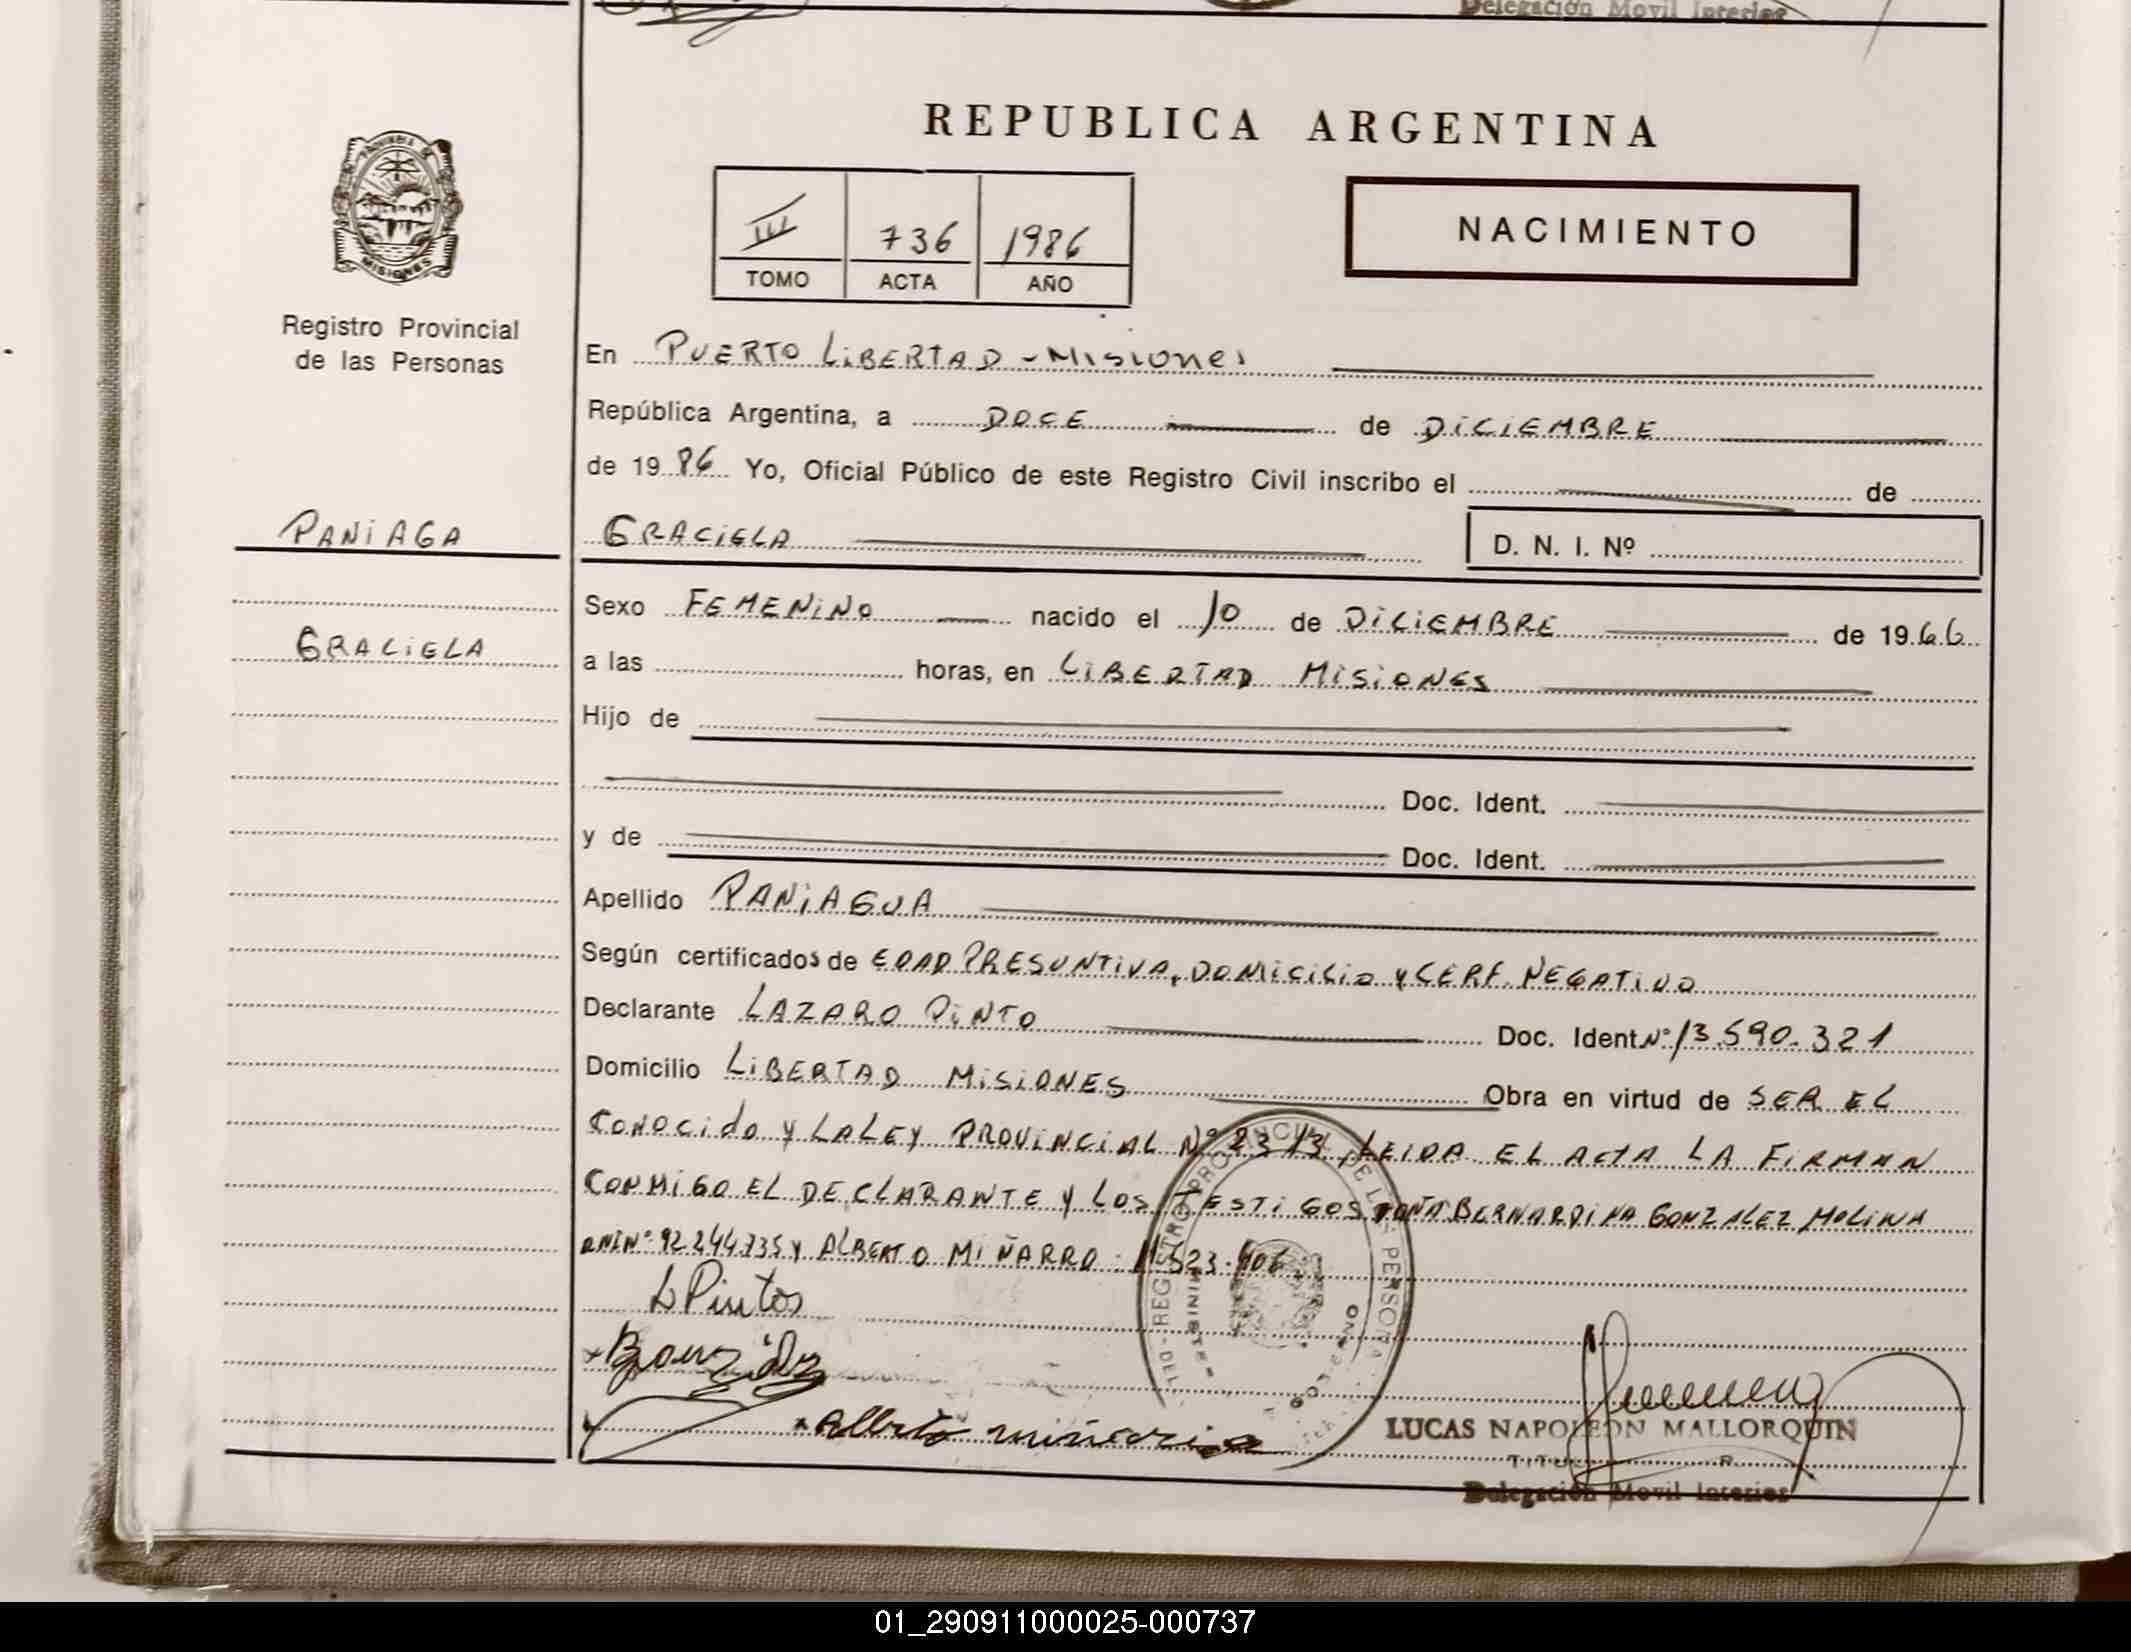 Delegación Movil Interior
REPUBLICA ARGENTINA
PROVINCIA DE
MISIONES
III 736 1986
TOMO ACTA AÑO
NACIMIENTO
Registro Provincial
de las Personas
En PUERTO LIBERTAD - MISIONES
República Argentina, a DOCE de DICIEMBRE
de 1986 Yo, Oficial Público de este Registro Civil inscribo el de
PANIAGA
GRACIELA
D. N. I. Nº
Sexo FEMENINO nacido el 10 de DICIEMBRE de 1966
GRACIELA
a las horas, en LIBERTAD MISIONES
Hijo de
Doc. Ident.
y de Doc. Ident.
Apellido PANIAGUA
Según certificados de EDAD PRESUNTIVA, DOMICILIO Y CERF. NEGATIVO
Declarante LAZARO PINTO Doc. Ident Nº 13.590.321
Domicilio LIBERTAD MISIONES Obra en virtud de SER EL
CONOCIDO Y LA LEY PROVINCIAL Nº 2313, LEIDA EL ACTA LA FIRMAN
CONMIGO EL DECLARANTE Y LOS TESTIGOS DOÑA BERNARDINA GONZALEZ MOLINA
DNI Nº 92.244.735 Y ALBERTO MIÑARRO: 11.523.406
L Pintos
Alberto
REGISTRO PROVINCIAL DE LAS PERSONAS
MINISTER
GOBIERNO
LUCAS NAPOLEON MALLORQUIN
Delegación Movil Interior
01_290911000025-000737